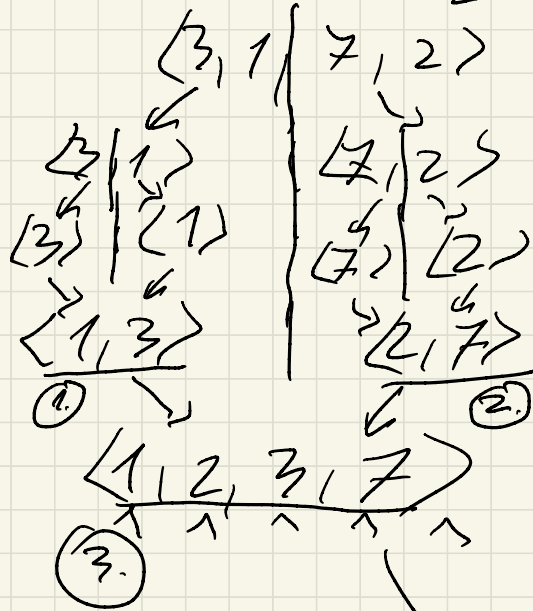 ⟨3, 1, 7, 2⟩
⟨3 1⟩ ⟨7, 2⟩
⟨3⟩ ⟨1⟩ ⟨7⟩ ⟨2⟩
⟨1, 3⟩ ⟨2, 7⟩
1. 2.
⟨1, 2, 3, 7⟩
3.